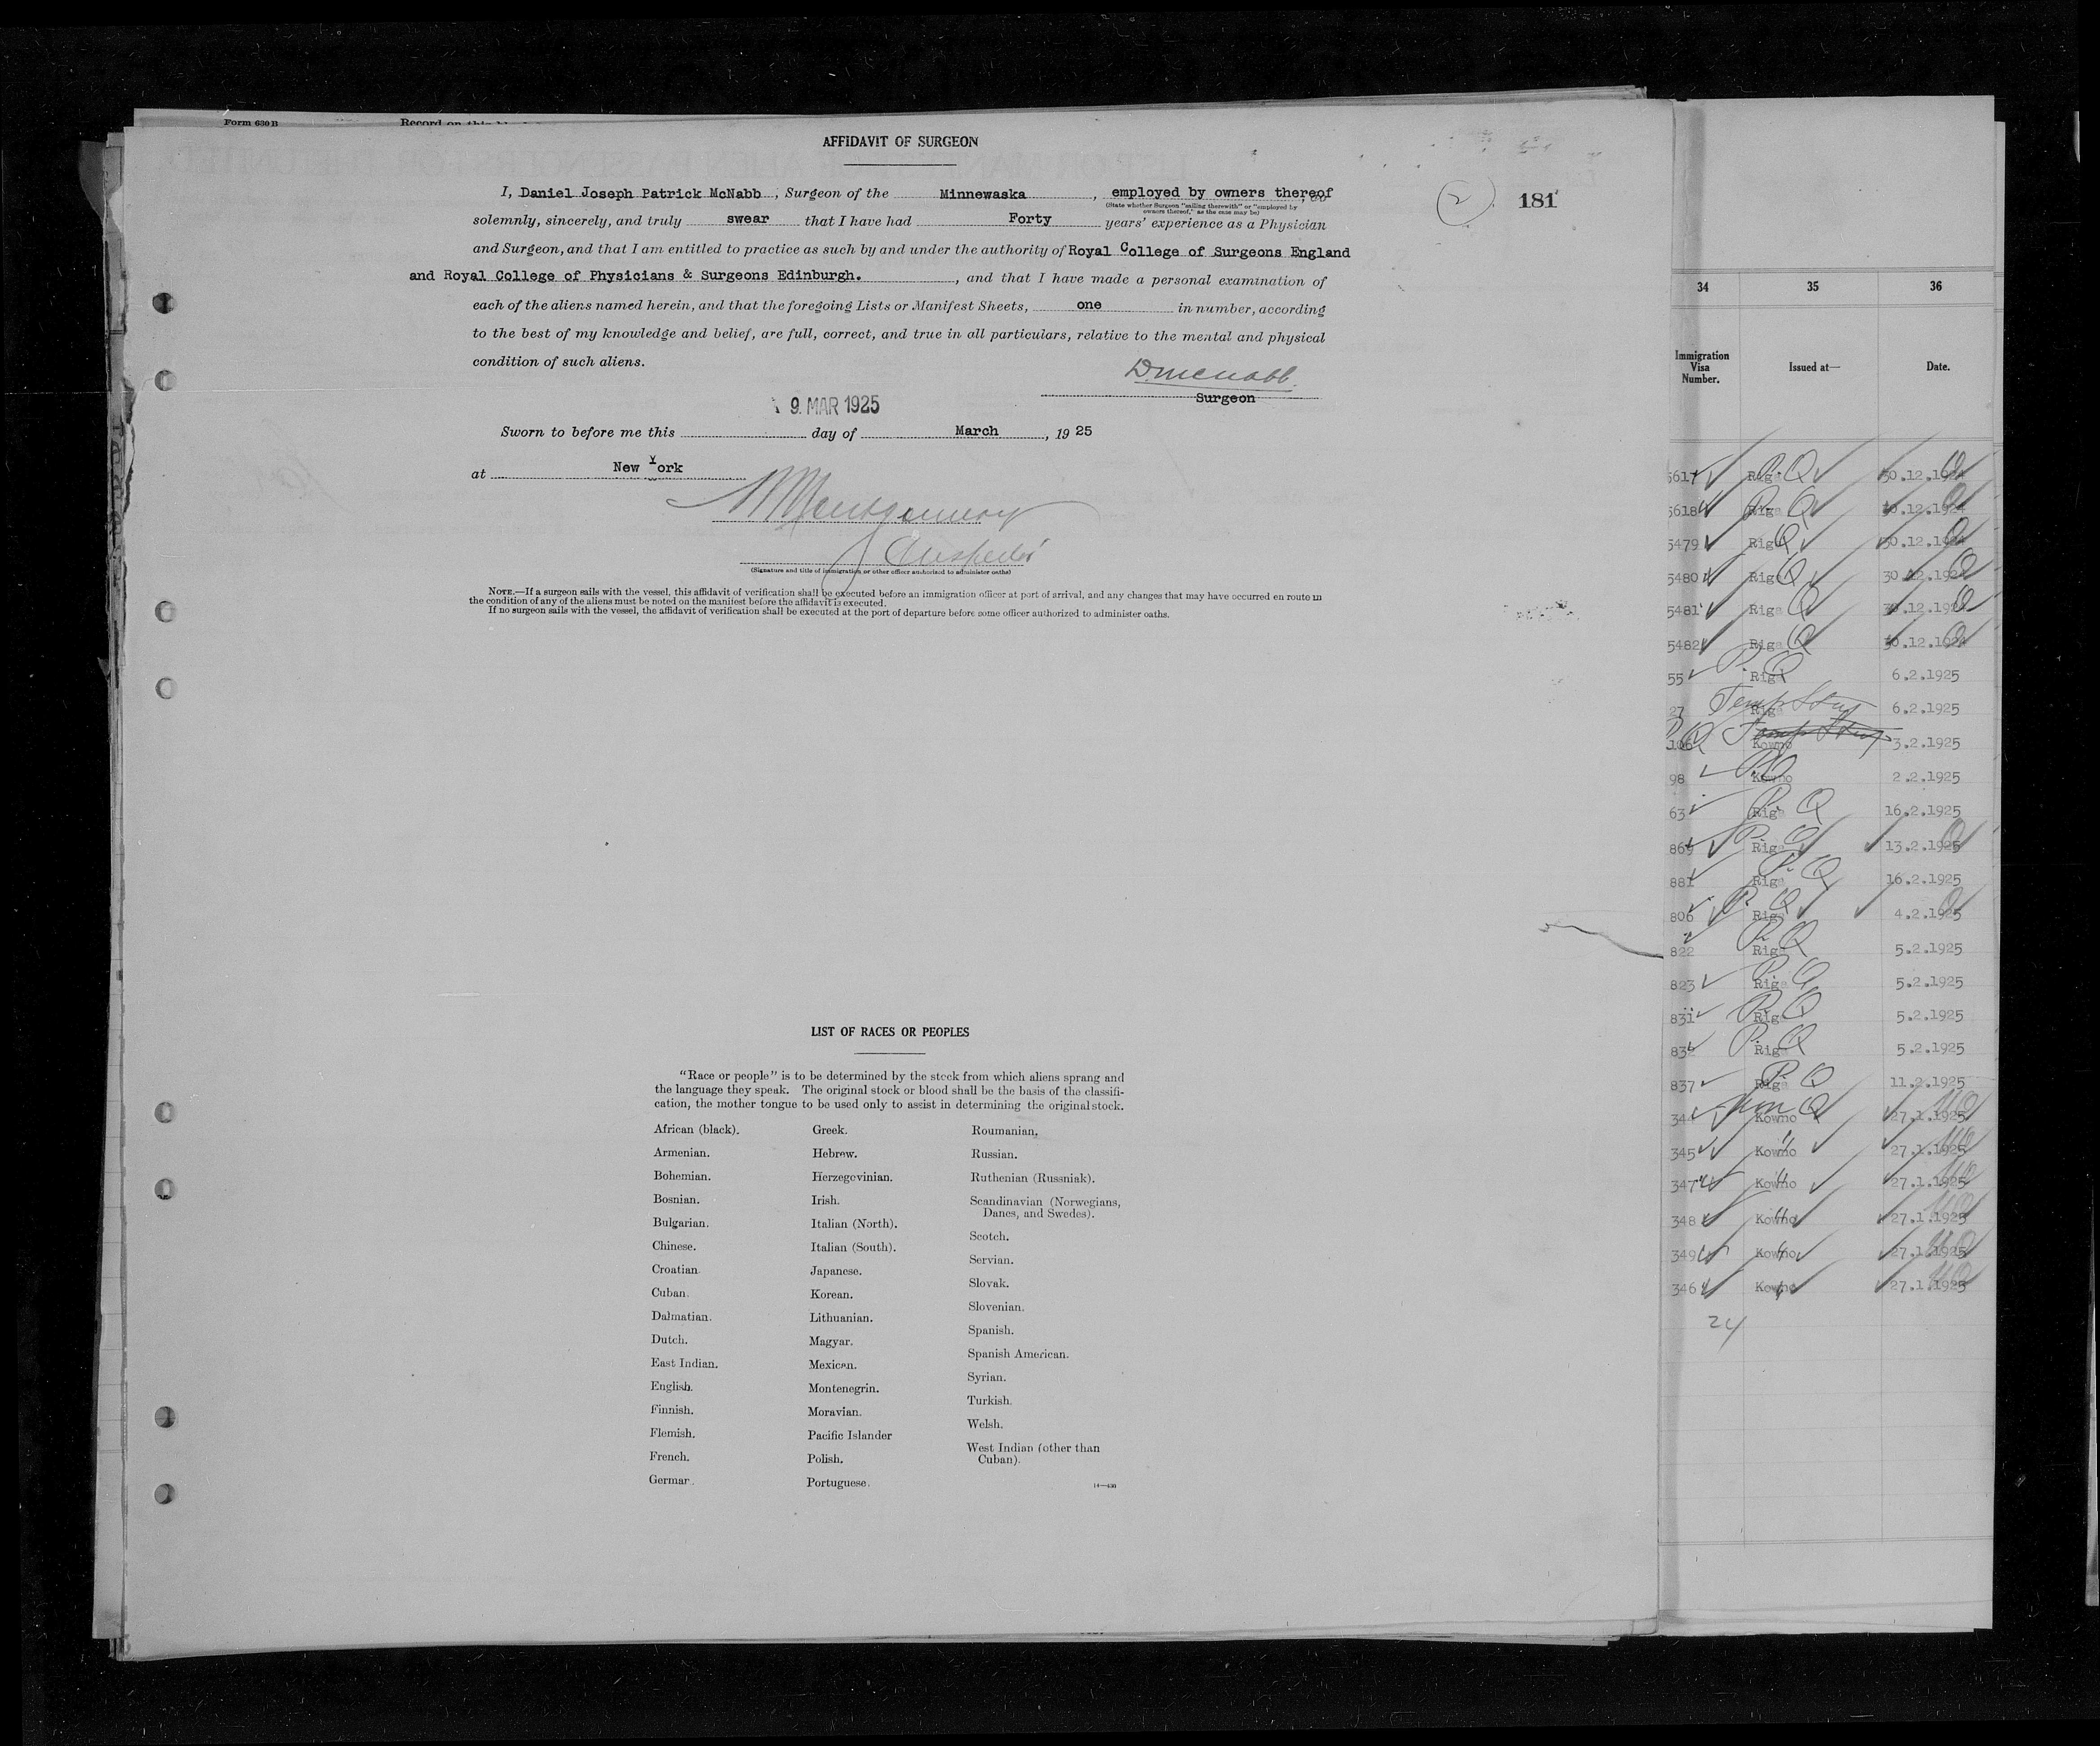 Form 630 B
Record on this
AFFIDAVIT OF SURGEON
I, Daniel Joseph Patrick McNabb, Surgeon of the Minnewaska, employed by owners thereof, do
(State whether Surgeon "sailing therewith" or "employed by
owners thereof," as the case may be)
solemnly, sincerely, and truly swear that I have had Forty years' experience as a Physician
and Surgeon, and that I am entitled to practice as such by and under the authority of Royal College of Surgeons England
and Royal College of Physicians & Surgeons Edinburgh., and that I have made a personal examination of
each of the aliens named herein, and that the foregoing Lists or Manifest Sheets, one in number, according
to the best of my knowledge and belief, are full, correct, and true in all particulars, relative to the mental and physical
condition of such aliens.
D McNabb.
Surgeon
9 MAR 1925
Sworn to before me this day of March, 19 25
at New York
Montgomery
Inspector
(Signature and title of immigration or other officer authorized to administer oaths)
NOTE.—If a surgeon sails with the vessel, this affidavit of verification shall be executed before an immigration officer at port of arrival, and any changes that may have occurred en route in
the condition of any of the aliens must be noted on the manifest before the affidavit is executed.
If no surgeon sails with the vessel, the affidavit of verification shall be executed at the port of departure before some officer authorized to administer oaths.
2
181
LIST OF RACES OR PEOPLES
"Race or people" is to be determined by the stock from which aliens sprang and
the language they speak. The original stock or blood shall be the basis of the classifi-
cation, the mother tongue to be used only to assist in determining the original stock.
African (black).
Armenian.
Bohemian.
Bosnian.
Bulgarian.
Chinese.
Croatian.
Cuban.
Dalmatian.
Dutch.
East Indian.
English.
Finnish.
Flemish.
French.
German.
Greek.
Hebrew.
Herzegovinian.
Irish.
Italian (North).
Italian (South).
Japanese.
Korean.
Lithuanian.
Magyar.
Mexican.
Montenegrin.
Moravian.
Pacific Islander
Polish.
Portuguese.
Roumanian.
Russian.
Ruthenian (Russniak).
Scandinavian (Norwegians,
Danes, and Swedes).
Scotch.
Servian.
Slovak.
Slovenian.
Spanish.
Spanish American.
Syrian.
Turkish.
Welsh.
West Indian (other than
Cuban).
34 35 36
Immigration
Visa
Number.
Issued at—
Date.
5617 Riga P. Q 30.12.1924
5618 Riga P. Q 30.12.1924
5479 Riga Q 30.12.1924
5480 Riga Q 30.12.1924
5481 Riga Q 30.12.1924
5482 Riga Q 30.12.1924
55 Riga P. Q 6.2.1925
27 Riga Temp Stay 6.2.1925
106 Kowno Temp Stay 3.2.1925
98 Kowno 2.2.1925
63 Riga P. Q 16.2.1925
869 Riga P. Q 13.2.1925
881 Riga P. Q 16.2.1925
806 Riga P. Q 4.2.1925
822 Riga P. Q 5.2.1925
823 Riga P. Q 5.2.1925
831 Riga P. Q 5.2.1925
832 Riga P. Q 5.2.1925
837 Riga P. Q 11.2.1925
344 Kowno Non Q 27.1.1925
345 Kowno " 27.1.1925
347 Kowno " 27.1.1925
348 Kowno " 27.1.1925
349 Kowno " 27.1.1925
346 Kowno " 27.1.1925
24